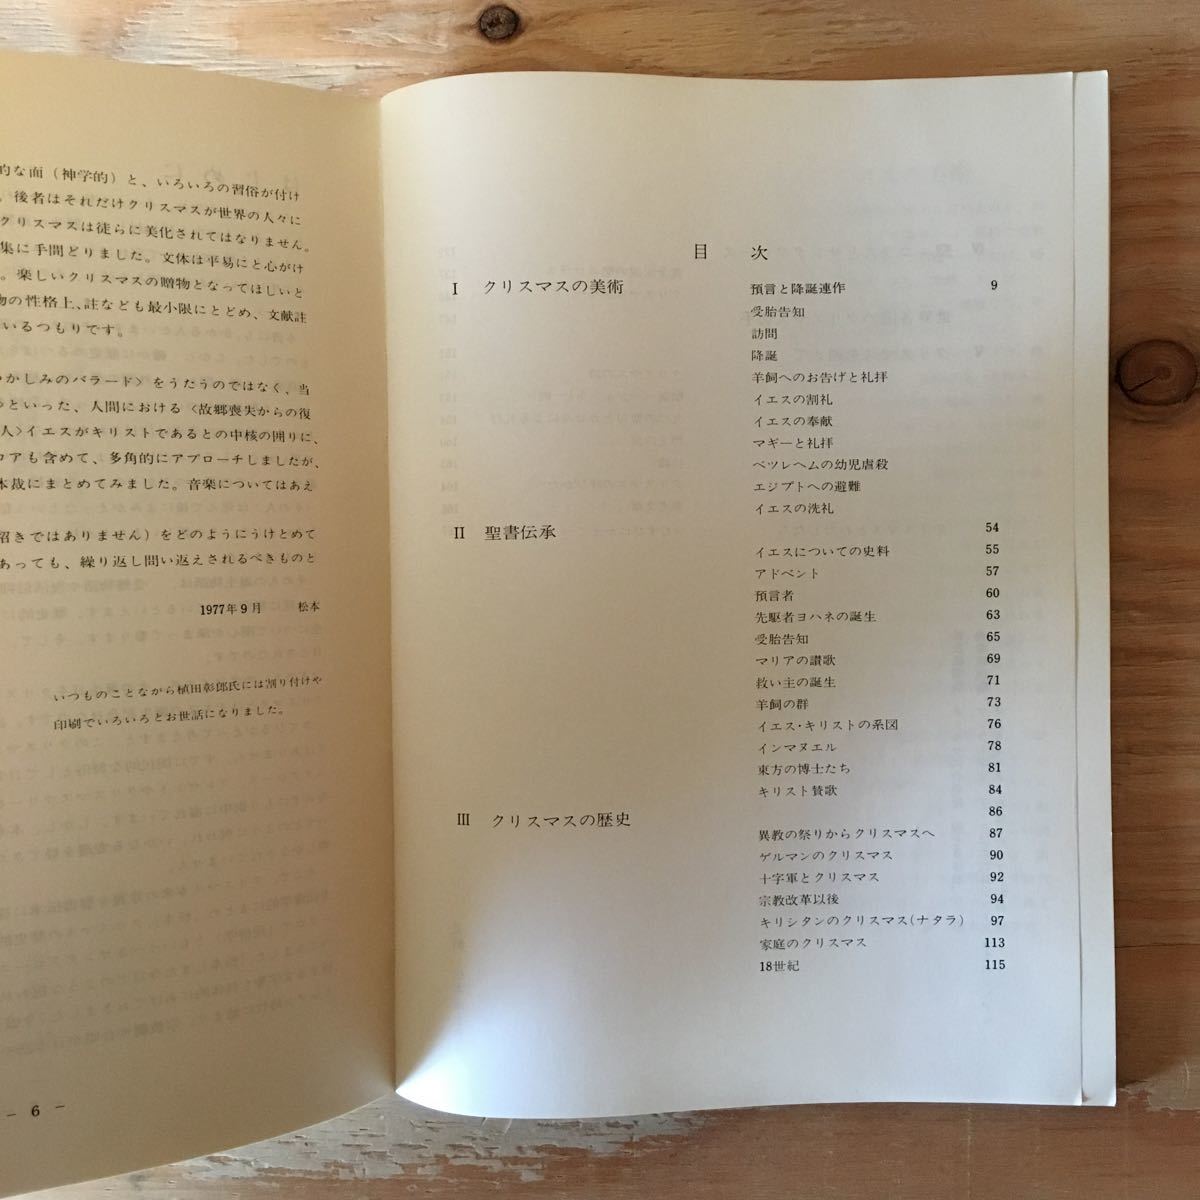 的な面（神学的）と、いろいろの習俗が付け
。後者はそれだけクリスマスが世界の人々に
クリスマスは徒らに美化されてはなりません。
集に手間どりました。文体は平易にと心がけ
。楽しいクリスマスの贈物となってほしいと
物の性格上、註なども最小限にとどめ、文献註
いるつもりです。
つかしみのバラード〉をうたうのではなく、当
といった、人間における〈故郷喪失からの復
人〉イエスがキリストであるとの中核の囲りに、
ロアも含めて、多角的にアプローチしましたが、
本裁にまとめてみました。音楽についてはあえ
招きではありません）をどのようにうけとめて
あっても、繰り返し問い返えされるべきものと
1977年9月 松本
いつものことながら植田彰郎氏には割り付けや
印刷でいろいろとお世話になりました。
－ 6 －
目 次
Ⅰ クリスマスの美術 預言と降誕連作 9
受胎告知
訪問
降誕
羊飼へのお告げと礼拝
イエスの割礼
イエスの奉献
マギーと礼拝
ベツレヘムの幼児虐殺
エジプトへの避難
イエスの洗礼
Ⅱ 聖書伝承 54
イエスについての史料 55
アドベント 57
預言者 60
先駆者ヨハネの誕生 63
受胎告知 65
マリアの讃歌 69
救い主の誕生 71
羊飼の群 73
イエス・キリストの系図 76
インマヌエル 78
東方の博士たち 81
キリスト賛歌 84
Ⅲ クリスマスの歴史 86
異教の祭りからクリスマスへ 87
ゲルマンのクリスマス 90
十字軍とクリスマス 92
宗教改革以後 94
キリシタンのクリスマス（ナタラ） 97
家庭のクリスマス 113
18世紀 115